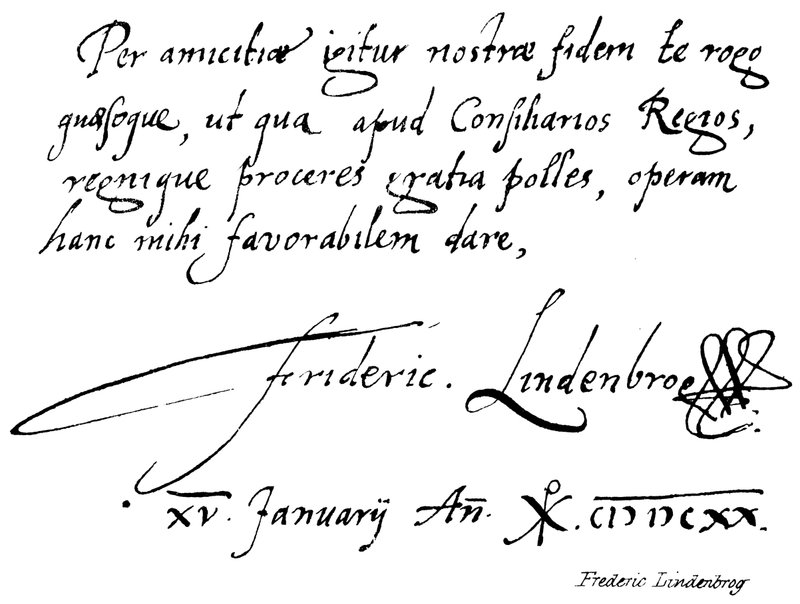 Per amicitiæ igitur nostræ fidem te rogo
quæsoque, ut qua apud Consiliarios Regios,
regnique proceres gratia polles, operam
hanc mihi favorabilem dare,
Frideric. Lindenbrog
xv. Januarij An̄. ☧. CIↃ IↃCXX.
Frederic Lindenbrog